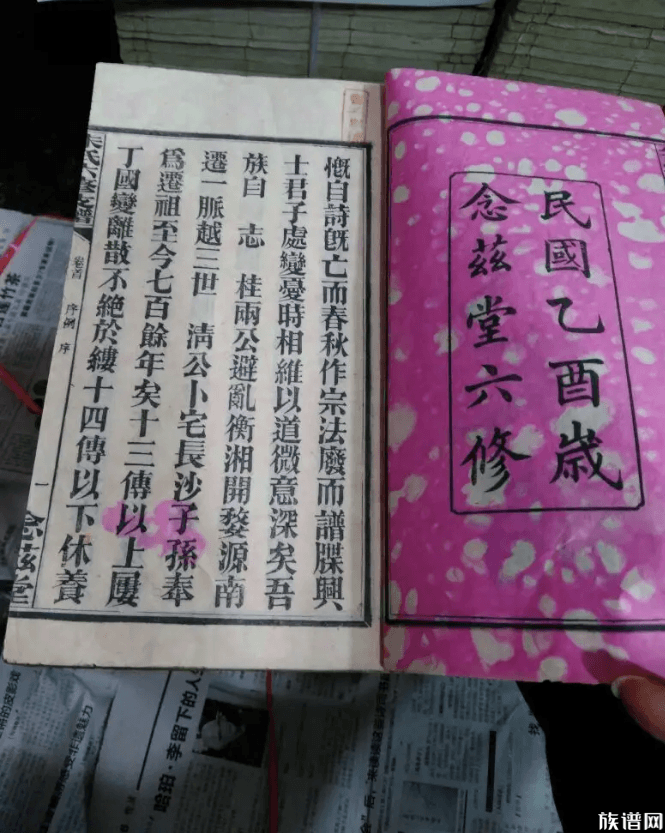 民國乙酉歲
念茲堂六修
慨自詩旣亡而春秋作宗法廢而譜牒興
士君子處變憂時相維以道微意深矣吾
族自 志 桂兩公避亂衡湘開婺源南
遷一脈越三世 淸公卜宅長沙子孫奉
爲遷祖至今七百餘年矣十三傳以上屢
丁國變離散不絕於縷十四傳以下休養
朱氏六修支譜
卷首
序例 序
一
念茲堂
哈珀·李留下的人
族谱网